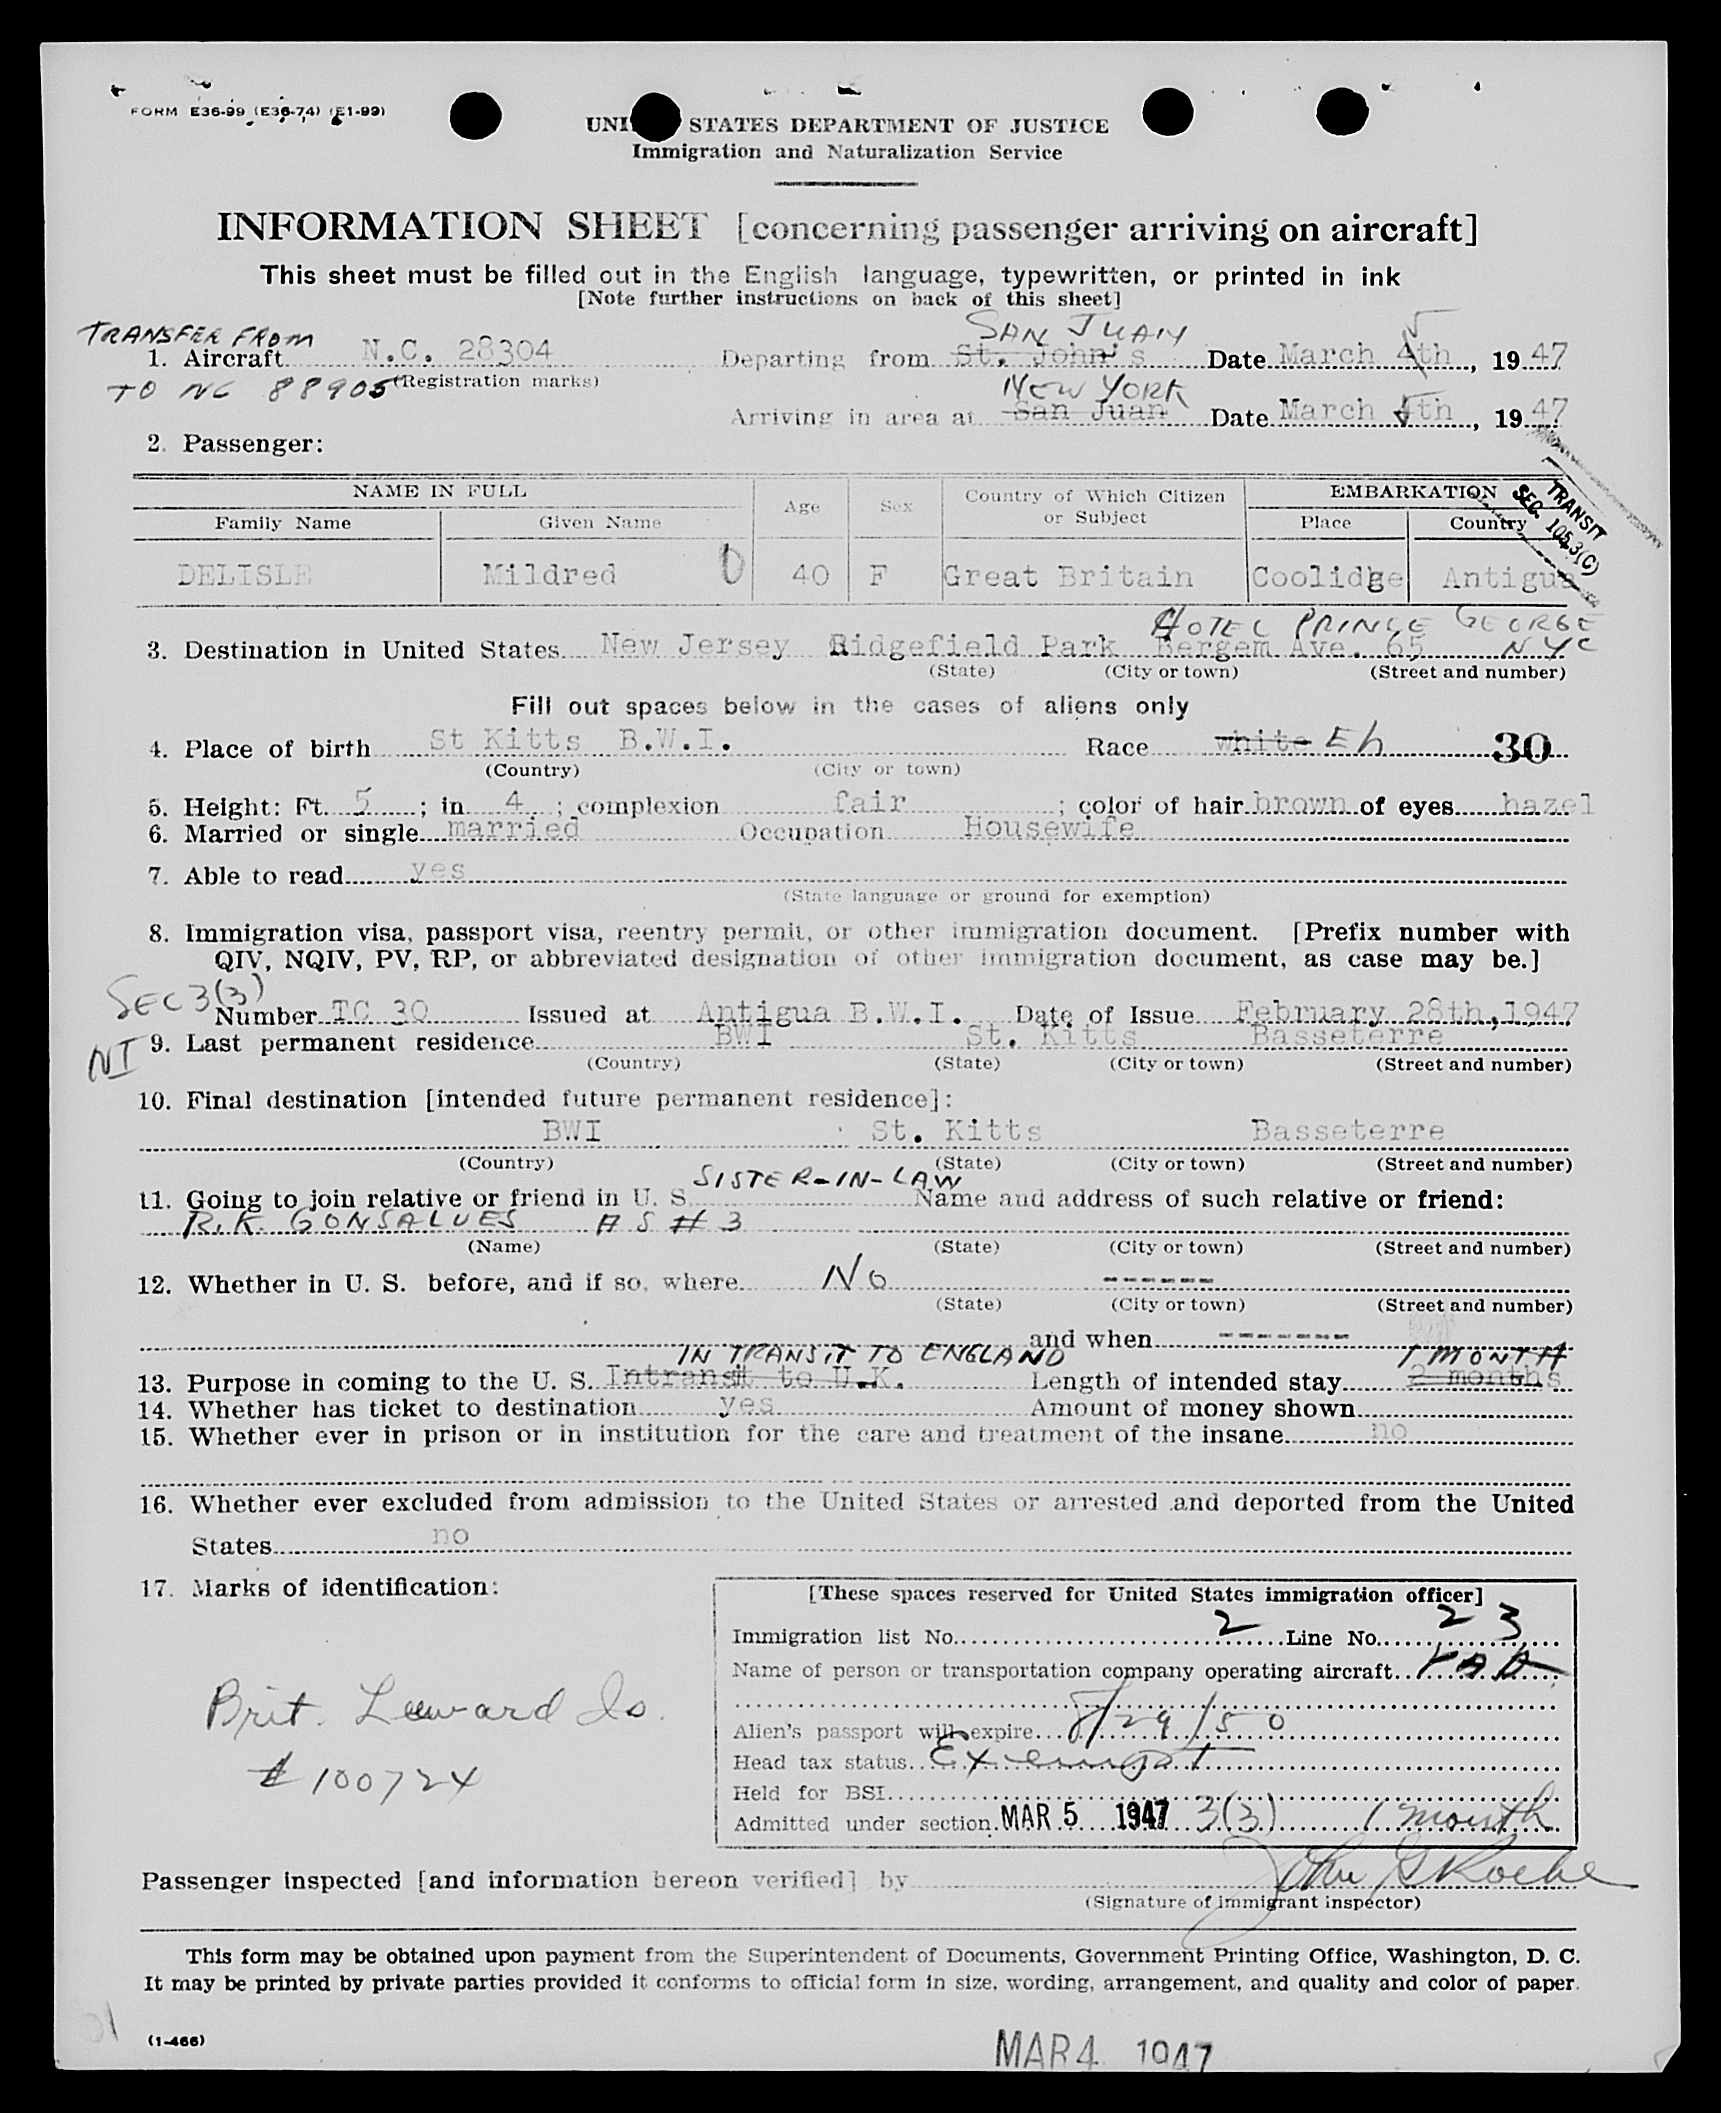 FORM E36-99 (E36-74) (E1-99)
UNI STATES DEPARTMENT OF JUSTICE
Immigration and Naturalization Service
INFORMATION SHEET [concerning passenger arriving on aircraft]
This sheet must be filled out in the English language, typewritten, or printed in ink
[Note further instructions on back of this sheet]
TRANSFER FROM SAN JUAN 5
1. Aircraft N.C. 28304 Departing from St. John's Date March 4th, 1947
TO NC 88905 (Registration marks) NEW YORK
Arriving in area at San Juan Date March 5th, 1947
2. Passenger:
TRANSIT
SEC. 105.3(C)
NAME IN FULL Age Sex Country of Which Citizen or Subject EMBARKATION
Family Name Given Name Place Country
DELISLE Mildred O 40 F Great Britain Coolidge Antigua
HOTEL PRINCE GEORGE
3. Destination in United States New Jersey Ridgefield Park Bergem Ave. 65 NYC
(State) (City or town) (Street and number)
Fill out spaces below in the cases of aliens only
4. Place of birth St Kitts B.W.I. Race white Eh 30
(Country) (City or town)
5. Height: Ft. 5; in 4; complexion fair; color of hair brown of eyes hazel
6. Married or single married Occupation Housewife
7. Able to read yes
(State language or ground for exemption)
8. Immigration visa, passport visa, reentry permit, or other immigration document. [Prefix number with
QIV, NQIV, PV, RP, or abbreviated designation of other immigration document, as case may be.]
SEC 3(3)
Number TC 30 Issued at Antigua B.W.I. Date of Issue February 28th, 1947
NI 9. Last permanent residence BWI St. Kitts Basseterre
(Country) (State) (City or town) (Street and number)
10. Final destination [intended future permanent residence]:
BWI St. Kitts Basseterre
(Country) (State) (City or town) (Street and number)
SISTER-IN-LAW
11. Going to join relative or friend in U. S. Name and address of such relative or friend:
R.K. GONSALVES AS #3
(Name) (State) (City or town) (Street and number)
12. Whether in U. S. before, and if so, where No -----
(State) (City or town) (Street and number)
and when -------
IN TRANSIT TO ENGLAND 1 MONTH
13. Purpose in coming to the U. S. Intransit to U.K. Length of intended stay 2 months
14. Whether has ticket to destination yes Amount of money shown
15. Whether ever in prison or in institution for the care and treatment of the insane no
16. Whether ever excluded from admission to the United States or arrested and deported from the United
States no
17. Marks of identification:
[These spaces reserved for United States immigration officer]
Immigration list No. 2 Line No. 23
Name of person or transportation company operating aircraft
Brit. Leeward Is.
# 100724
Alien's passport will expire 8/29/50
Head tax status Exempt
Held for BSI
Admitted under section MAR 5 1947 3(3) 1 month
Passenger inspected [and information hereon verified] by John G Roche
(Signature of immigrant inspector)
This form may be obtained upon payment from the Superintendent of Documents, Government Printing Office, Washington, D. C.
It may be printed by private parties provided it conforms to official form in size, wording, arrangement, and quality and color of paper.
(1-466)
MAR 4 1947